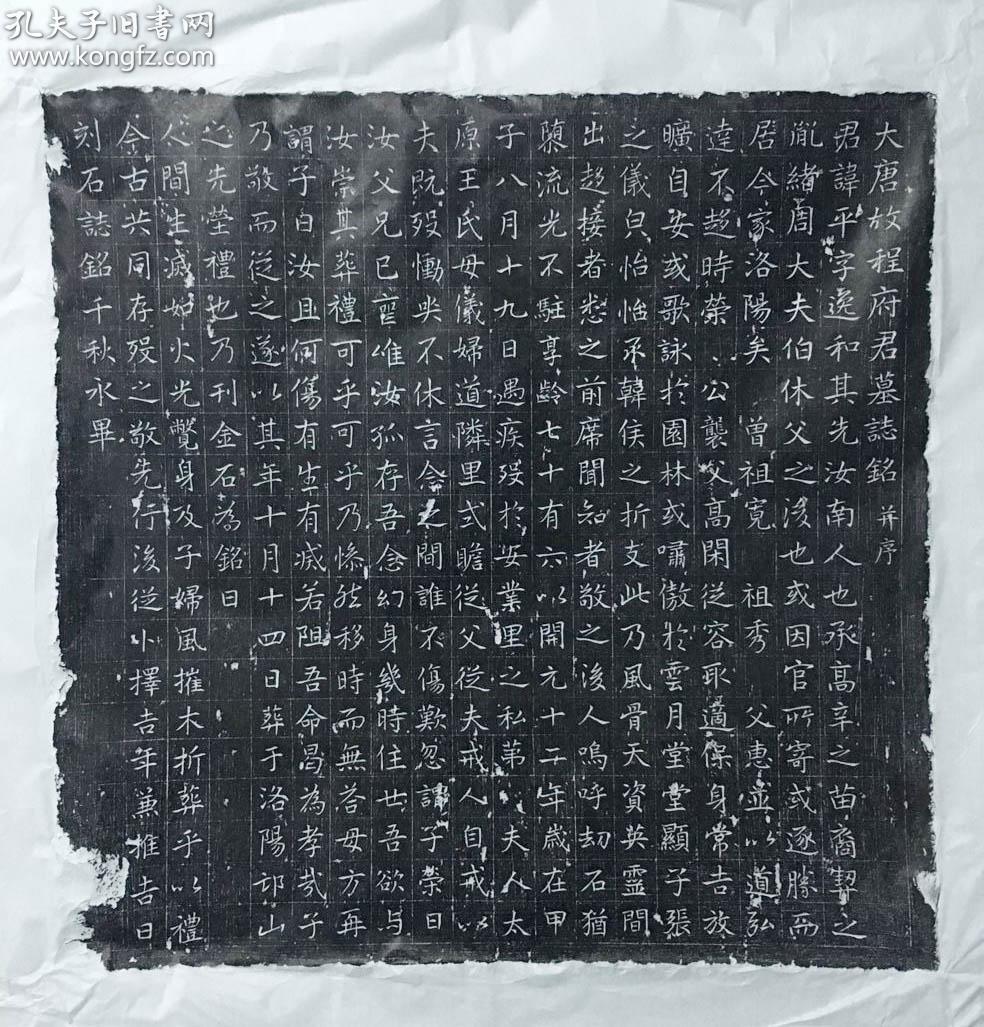 孔夫子旧书网
www.kongfz.com
大唐故程府君墓誌銘并序
君諱平字逸和其先汝南人也承高辛之苗裔契之
胤緒周大夫伯休父之後也或因官所寄或逐勝而
居今家洛陽矣曾祖寬祖秀父惠並以道弘
達不趍時榮公襲父高閑從容取適保身常吉放
曠自安或歌詠扵園林或嘯傲扵雲月堂堂顯子張
之儀皃怡怡承韓侯之折支此乃風骨天資英靈間
出趍接者愁之前席聞知者敬之後人嗚呼劫石猶
隳流光不駐享齡七十有六以開元十二年歲在甲
子八月十九日遇疾歿扵安業里之私第夫人太
原王氏母儀婦道隣里式瞻從父從夫戒人自戒以
夫既歿慟哭不休言念之間誰不傷歎忽謂子榮曰
汝父兄已喪唯汝孤存吾念幻身幾時住世吾欲与
汝崇其葬禮可乎可乎乃慘然移時而無荅母方再
謂子曰汝且何傷有生有滅若阻吾命曷為孝哉子
乃敬而從之遂以其年十月十四日葬于洛陽邙山
之先塋禮也乃刊金石為銘曰
人間生滅如火光覺身及子婦風摧木折葬乎以禮
今古共同存歿之敬先行後從卜擇吉年兼推吉日
刻石誌銘千秋永畢